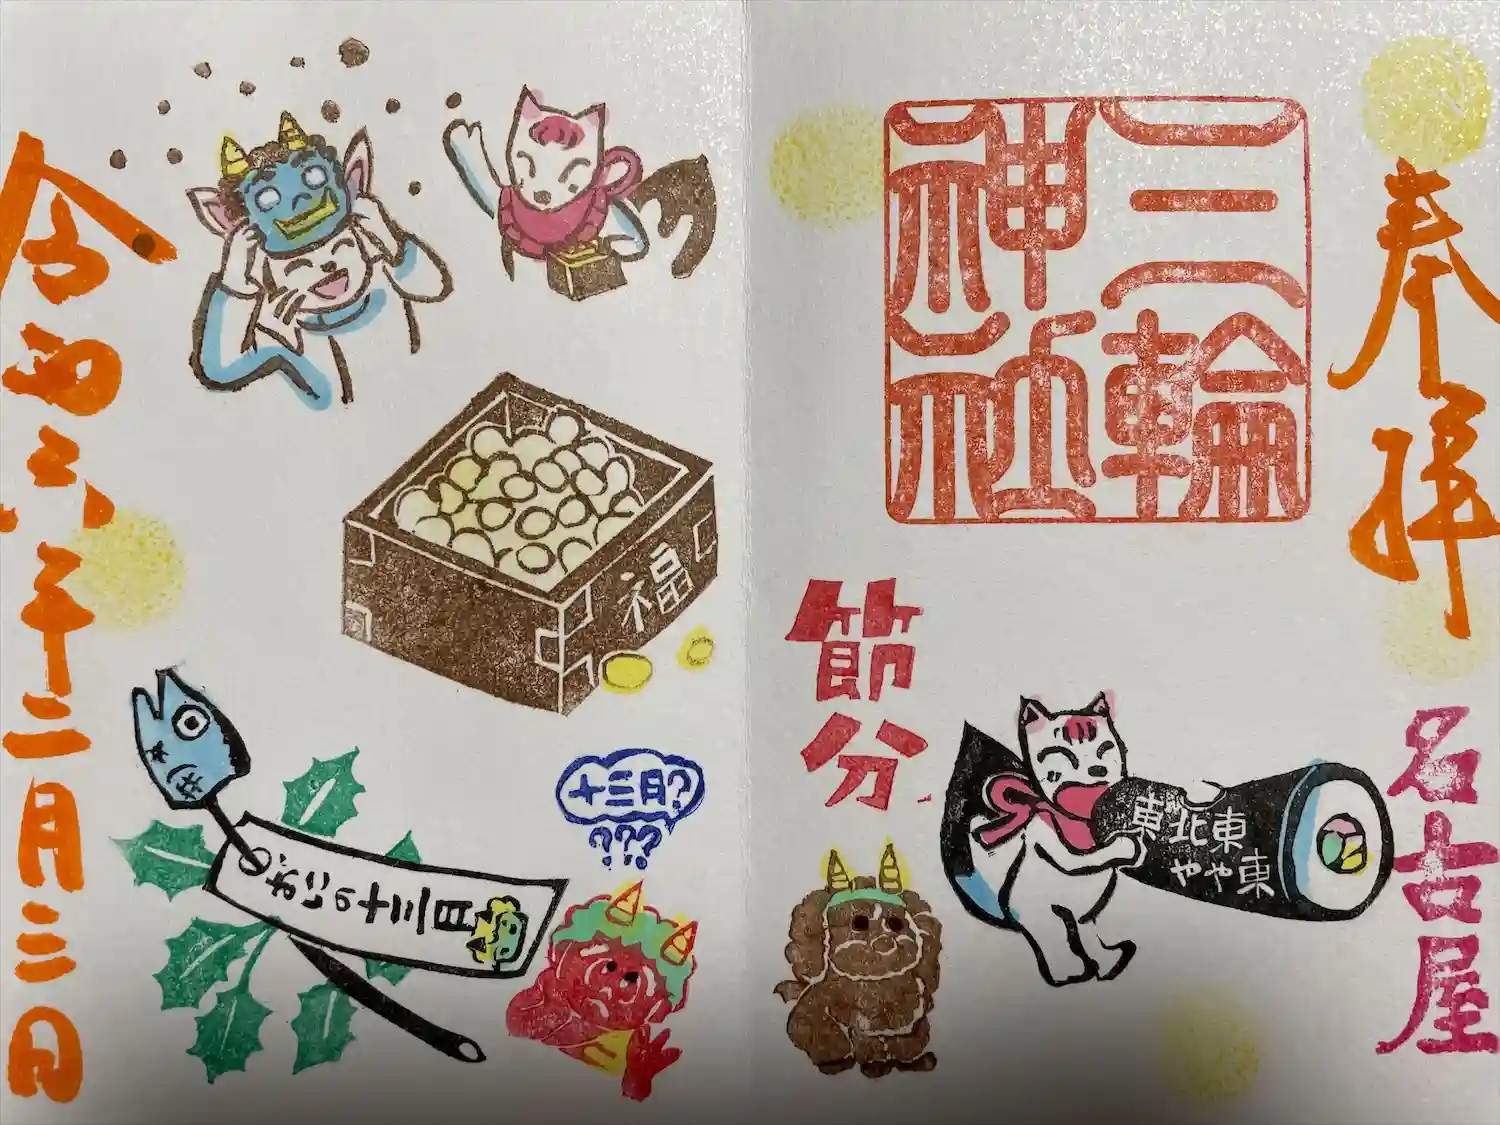 奉拝
名古屋
三輪
神社
節分
東北東
やや東
福
十三月?
???
おにの十三月
令和六年二月三日